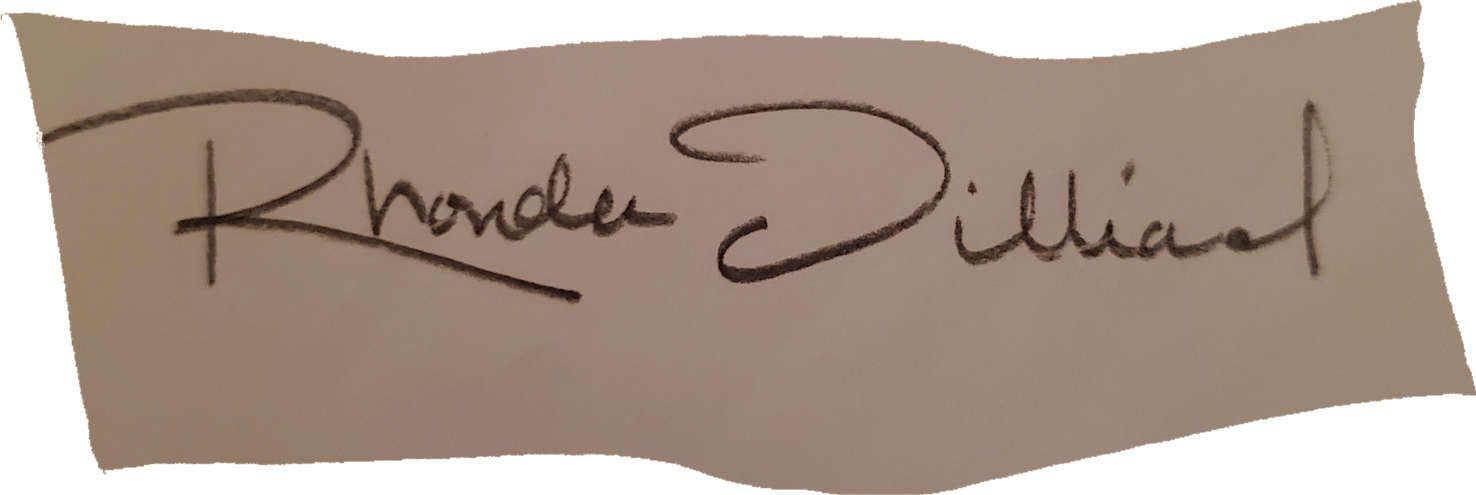 Rhonda Dilliard